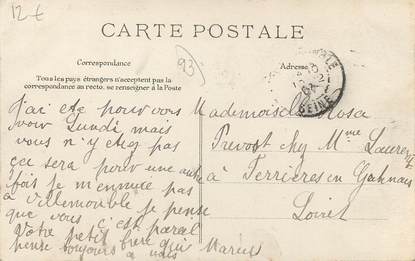 12 €
CARTE POSTALE
93
Correspondance
Adresse
Tous les pays étrangers n'acceptent pas la
correspondance au recto. se renseigner à la Poste
SEINE
J'ai été pour vous
voir Lundi mais
vous n'y étiez pas
ça sera pour une autre
fois je m'ennuie pas
à Villemomble je pense
que vous c'est pareil
Votre petit frère qui
pense toujours à vous
Marcel
Mademoiselle Rosa
Prevost chez Mme Laurent
à Ferrières en Gatinais
Loiret